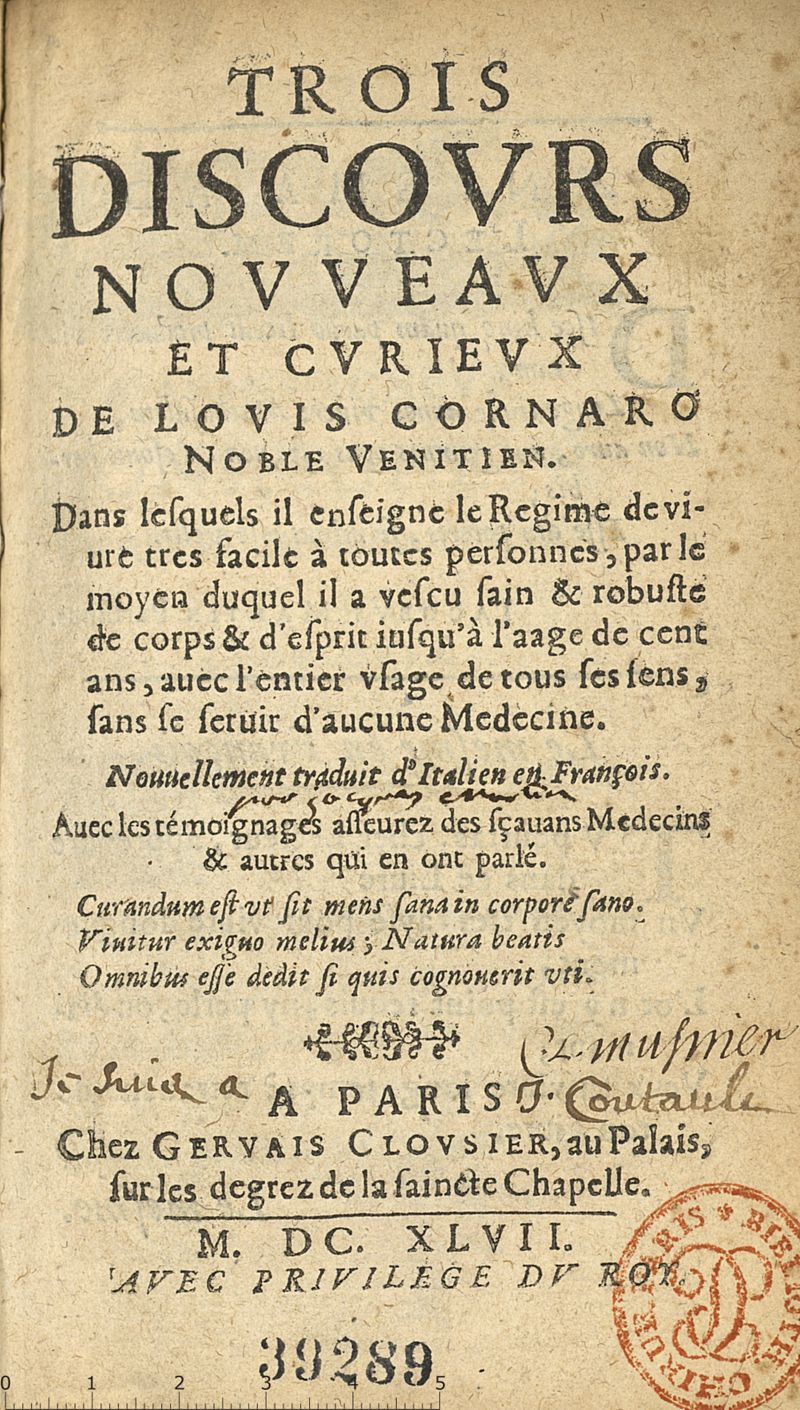 TROIS
DISCOVRS
NOVVEAVX
ET CVRIEVX
DE LOVIS CORNARO
NOBLE VENITIEN.
Dans leſquels il enſeigne le Regime de vi-
ure tres facile à toutes perſonnes, par le
moyen duquel il a veſcu ſain & robuſte
de corps & d'eſprit iuſqu'à l'aage de cent
ans, auec l'entier vſage de tous ſes ſens,
ſans ſe ſeruir d'aucune Medecine.
Nouuellement traduit d'Italien en François.
Auec les témoignages aſſeurez des ſçauans Medecins
& autres qui en ont parlé.
Curandum eſt vt ſit mens ſana in corpore ſano.
Viuitur exiguo melius; Natura beatis
Omnibus eſſe dedit ſi quis cognouerit vti.
Je suis a
A PARIS
Chez GERVAIS CLOVSIER, au Palais,
ſur les degrez de la ſaincte Chapelle.
M. DC. XLVII.
AVEC PRIVILEGE DV ROY.
39289
0 1 2 3 4 5